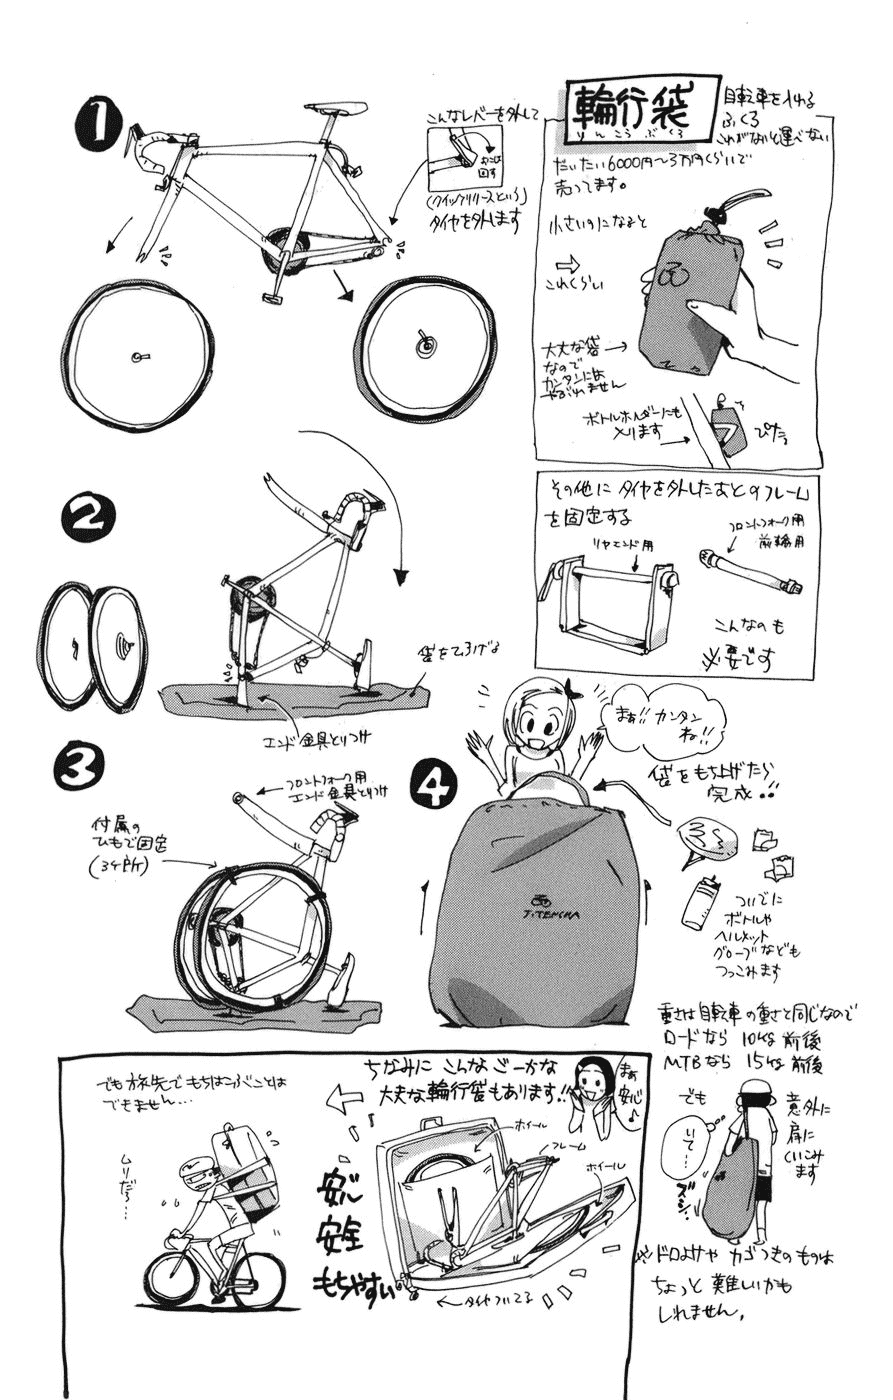 輪行袋
りんこうぶくろ
自転車を入れる
ふくろ
これがないと運べない
だいたい6000円〜3万円くらいで
売ってます。
小さいのになると
これくらい
大丈夫な袋
なので
カンタンには
やぶれません
ボトルホルダーにも
入ります
ぴたっ
その他にタイヤを外したあとのフレーム
を固定する
リヤエンド用
フロントフォーク用
前輪用
こんなのも
必要です
1
こんなレバーを外して
回す
(クイックリリースという)
タイヤを外します
2
袋をひろげる
エンド金具とりつけ
3
フロントフォーク用
エンド金具とりつけ
付属の
ひもで固定
(3ヶ所)
4
まぁ!!カンタン
ね!!
袋をもち上げたら
完成!!
ついでに
ボトルや
ヘルメット
グローブなども
つっこみます
重さは自転車の重さと同じなので
ロードなら 10kg 前後
MTBなら 15kg 前後
でも
いて…
ズシ
意外に
肩に
くいこみ
ます
※ドロよけや カゴつきのものは
ちょっと 難しいかも
しれません。
ちなみに こんな ごーかな
大丈夫な輪行袋もあります!!
まぁ
安心♪
ホイール
フレーム
ホイール
安心
安全
もちやすい
←タイヤついてる
でも 旅先で もちはこぶことは
できません…
ムリだろ…